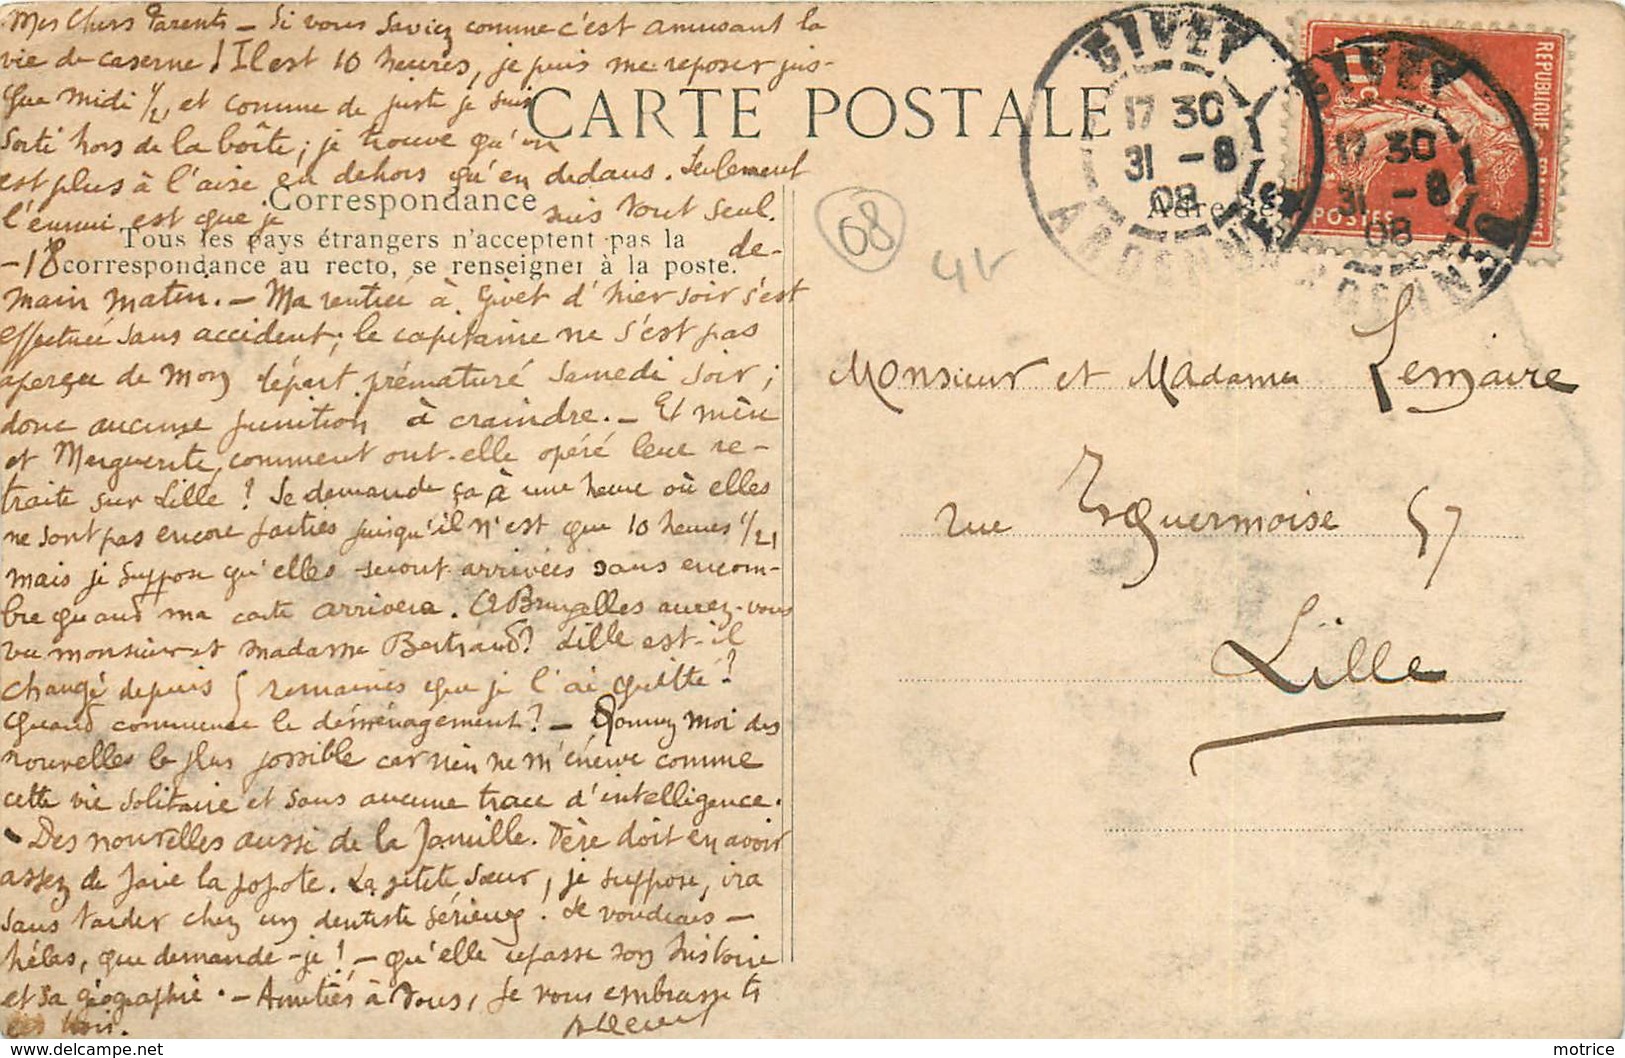 Mes Chers Parents – Si vous saviez comme c'est amusant la
vie de caserne ! Il est 10 heures, je puis me reposer jus-
que midi 1/2, et comme de juste je suis
sorti hors de la boîte ; je trouve qu'on
est plus à l'aise en dehors qu'en dedans. Seulement
l'ennui est que je suis tout seul.
CARTE POSTALE
Correspondance
Tous les pays étrangers n'acceptent pas la
correspondance au recto, se renseigner à la poste.
-18
de-
main matin. – Ma rentrée à Givet d'hier soir s'est
effectuée sans accident ; le capitaine ne s'est pas
aperçu de mon départ prématuré samedi soir ;
donc aucune punition à craindre. – Et mère
et Marguerite, comment ont-elle opéré leur re-
traite sur Lille ? Je demande ça à une heure où elles
ne sont pas encore parties puisqu'il n'est que 10 heures 1/2,
mais je suppose qu'elles seront arrivées sans encom-
bre quand ma carte arrivera. A Bruxelles aurez-vous
vu monsieur et madame Bertrand ? Lille est-il
changé depuis 5 semaines que je l'ai quitté ?
Quand commence le déménagement ? – Donnez moi des
nouvelles le plus possible car rien ne m'énerve comme
cette vie solitaire et sans aucune trace d'intelligence.
– Des nouvelles aussi de la famille. Père doit en avoir
assez de faire la popote. La petite sœur, je suppose, ira
sans tarder chez un dentiste sérieux. Je voudrais –
hélas, que demande-je ! – qu'elle repasse son histoire
et sa géographie. – Amitiés à tous, je vous embrasse ts
les trois.
GIVET
17 30
31 -8
08
ARDENNES
GIVET
17 30
31 -8
08
REPUBLIQUE FRANÇAISE
10c
POSTES
Adresse
68
Monsieur et Madame Lemaire
rue Esquermoise 57
Lille
motrice